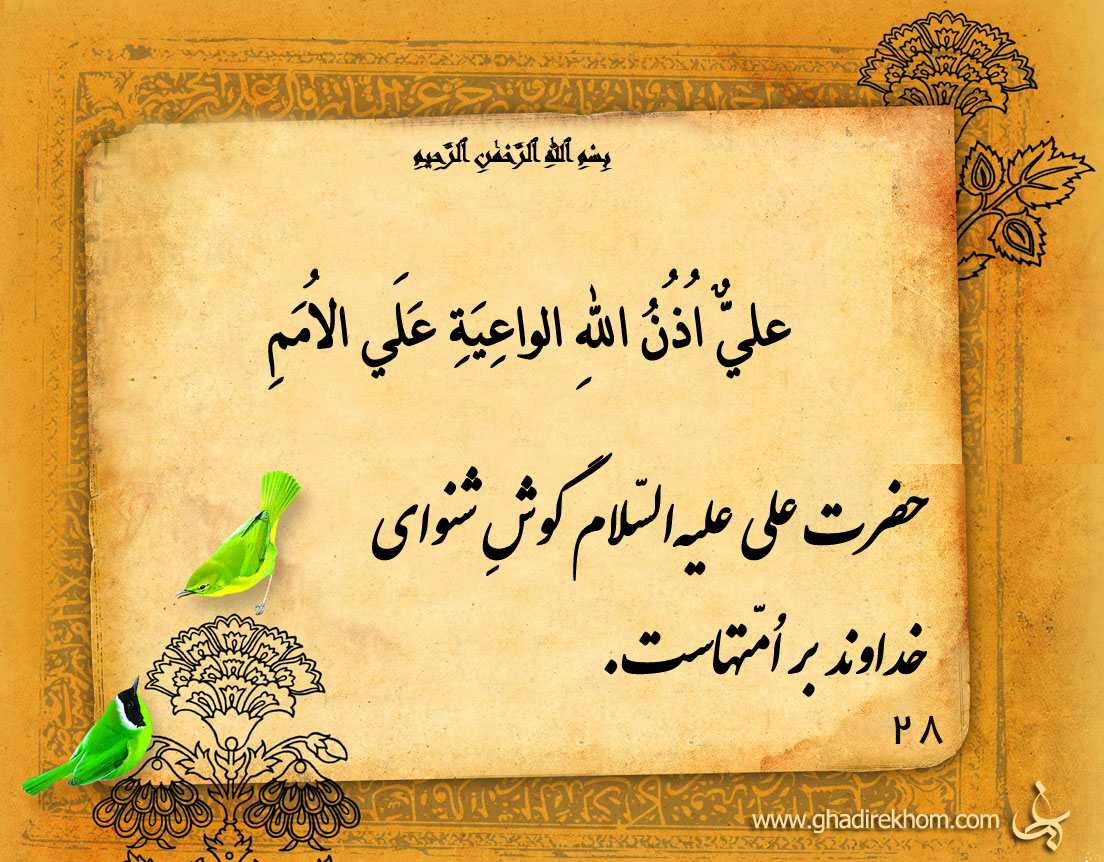 بِسْمِ ٱللَّهِ ٱلرَّحْمَٰنِ ٱلرَّحِيمِ
عليٌّ اُذُنُ اللهِ الواعِيَةِ عَلَي الاُمَمِ
حضرت علی علیه السّلام گوشِ شنوای
خداوند بر اُمّتهاست.
۲۸
www.ghadirekhom.com